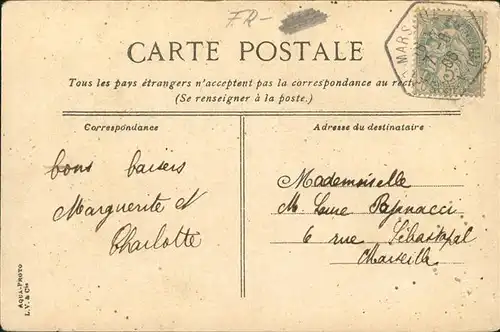 FR-
CARTE POSTALE
Tous les pays étrangers n'acceptent pas la correspondance au
(Se renseigner à la poste.)
Correspondance
Adresse du destinataire
bons baisers
Marguerite et
Charlotte
Mademoiselle
M. Papinacci
6 rue Sébastopol
Marseille
AQUA-PHOTO
L. V. & Cie